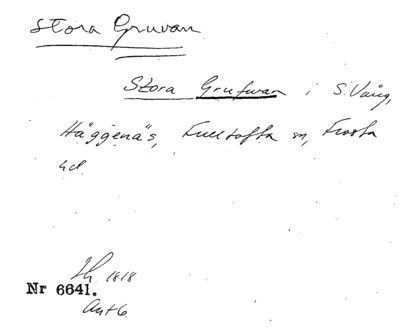 Stora Gruvan
Stora Grufwan i S. Vång,
Häggenäs, Fulltofta sn, Frosta
hd
1818
Nr 6641.
Akt 6